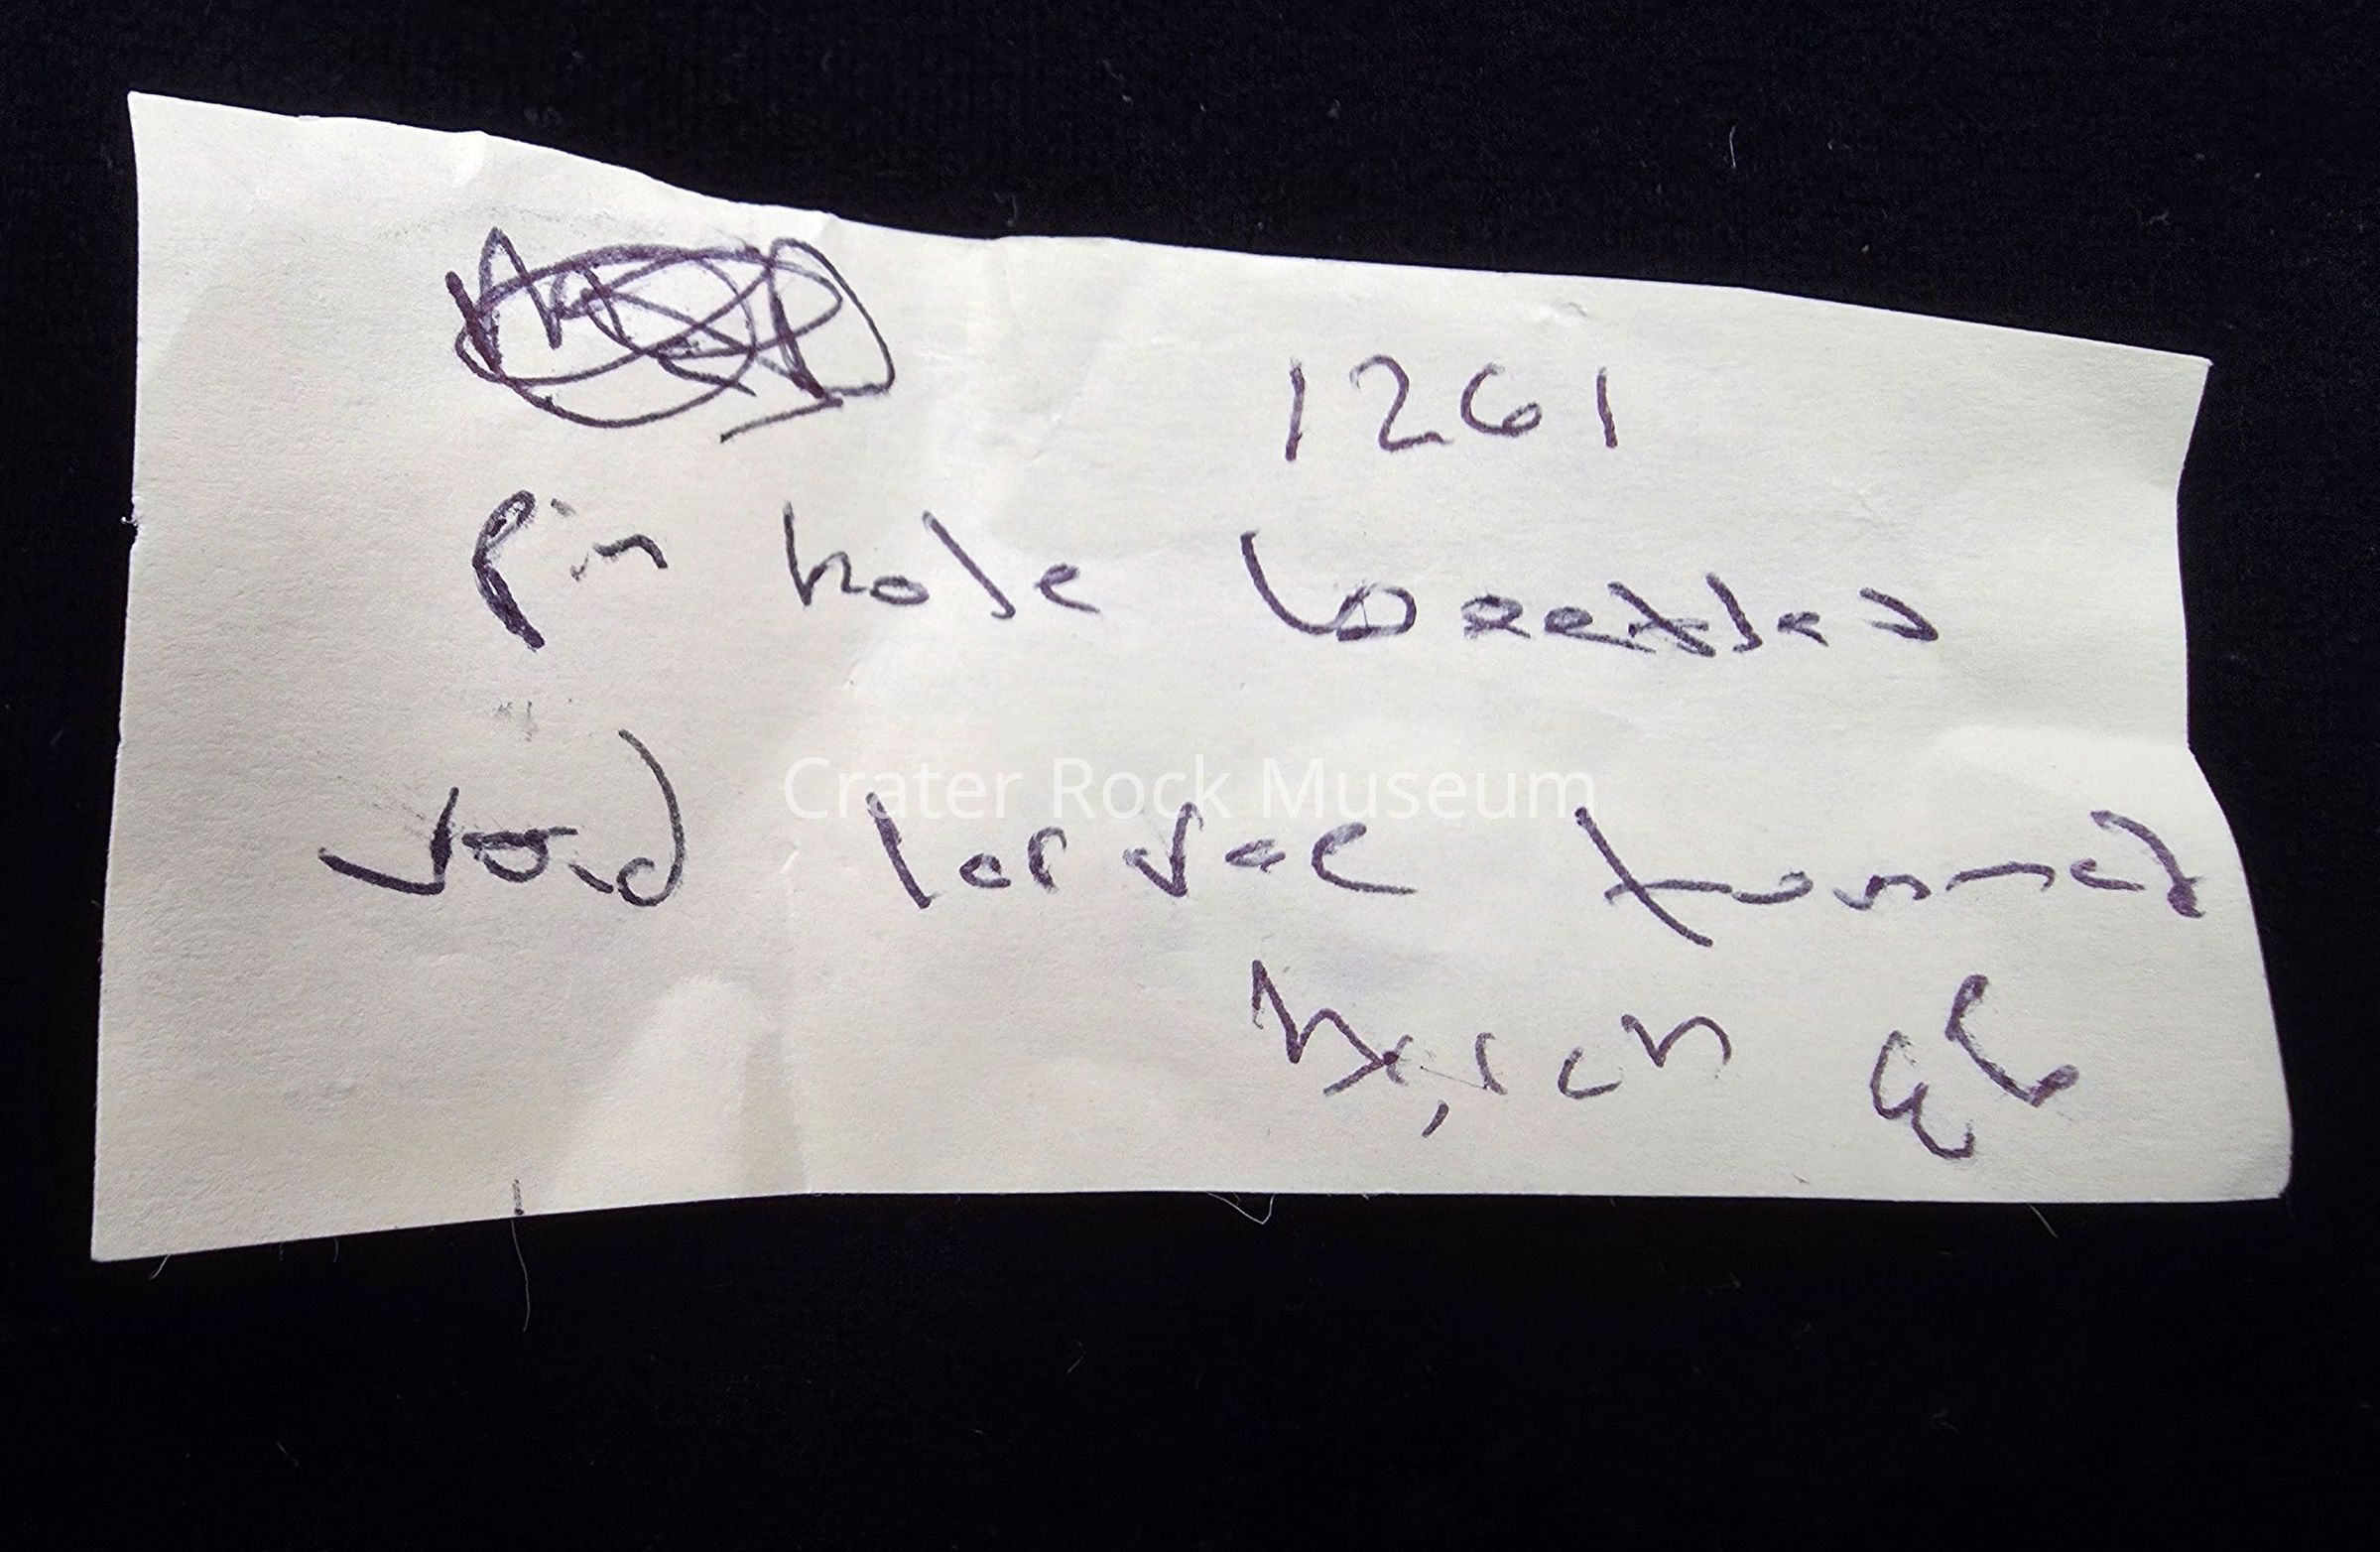 1261
Pin hole beetles
void larvae tunnel
Crater Rock Museum